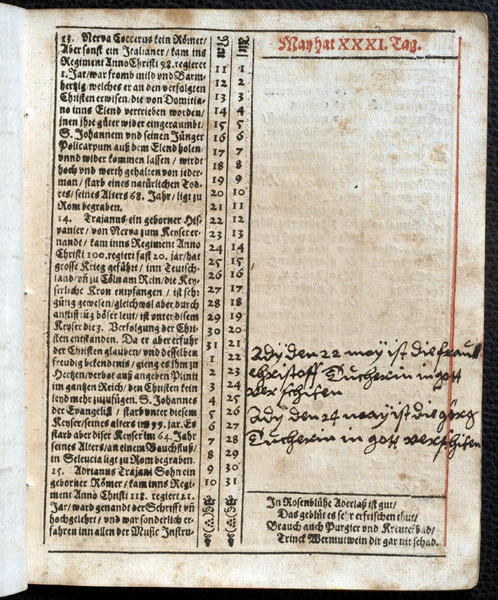 13. Nerva Cocceus kein Römer/
Aber sonst ein Italianer/ kam ins
Regiment Anno Christi 98. regieret
1. Jar/ war fromb mild vnd Barm-
hertzig welches er an den verfolgten
Christen erwisen/ die von Domitia-
no inns Elend vertrieben worden/
jnen jhre güter wider eingeraumbt/
S. Johannem vnd seinen Jünger
Policarpum auß dem Elend holen/
vnnd wider kommen lassen/ wirdt
hoch vnd werth gehalten von jeder-
man/ starb eines natürlichen Tod-
tes/ seines Alters 68. Jahr/ ligt zu
Rom begraben.
14. Trajanus ein geborner His-
panier/ von Nerva zum Keyser er-
nandt/ kam inns Regiment Anno
Christi 100. regiert fast 20. jar/ hat
grosse Krieg geführt/ inn Teutsch-
land/ vñ zu Cöln am Rein/ die Key-
serliche Kron entpfangen/ ist sehr
gütig gewesen/ gleichwol aber durch
anstifftüg böser leut/ ist vnter disem
Keyser die 3. Verfolgung der Chri-
sten entstanden. Da er aber erfuhr
der Christen glauben/ vnd desselben
freudig bekendenis/ gieng es ihm zu
Hertzen/ verbot auß angeben Plinii
im gantzen Reich/ den Christen kein
leyd mehr zuzufügen. S. Johannes
der Evangelist/ starb vnter diesem
Keyser/ seines alters im 99. jar. Es
starb aber diser Keyser im 64. Jahr
seines Alters/ an einem Bauchfluß/
in Seleucia ligt zu Rom begraben.
15. Adrianus Trajani Sohn ein
geborner Römer/ kam inns Regi-
ment Anno Christi 118. regiert 21.
Jar/ ward genandt der Schrifft vñ
hochgelehrt/ vnd war sonderlich er-
fahren inn allen der Music Instru-
11 1
12 2
13 3
14 4
15 5
16 6
17 7
18 8
19 9
20 10
21 11
22 12
23 13
24 14
25 15
26 16
27 17
28 18
29 19
30 20
31 21
1 22
2 23
3 24
4 25
5 26
6 27
7 28
8 29
9 30
10 31
May hat XXXI. Tag.
Ady den 22 may ist die frau
christoff Tucherin in gott
verschiken
Ady den 24 may ist die görg
Tucherin in gott verschiken
In Rosenblühe Aderlaß ist gut/
Das geblüt es sehr erfrischen thut/
Brauch auch Purgier vnd Kreuterbad/
Trinck Wermutwein dir gar nit schad.